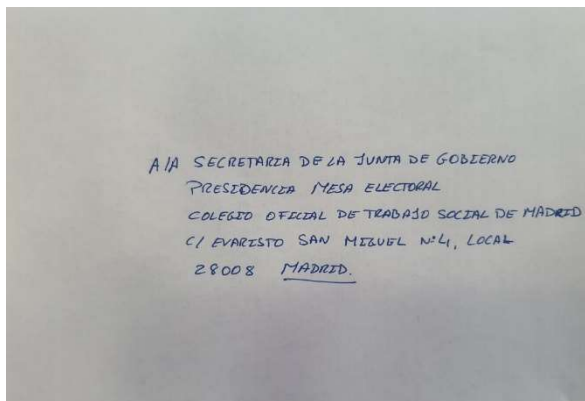 A/A SECRETARIA DE LA JUNTA DE GOBIERNO
PRESIDENCIA MESA ELECTORAL
COLEGIO OFICIAL DE TRABAJO SOCIAL DE MADRID
C/ EVARISTO SAN MIGUEL Nº 4, LOCAL
28008 MADRID.